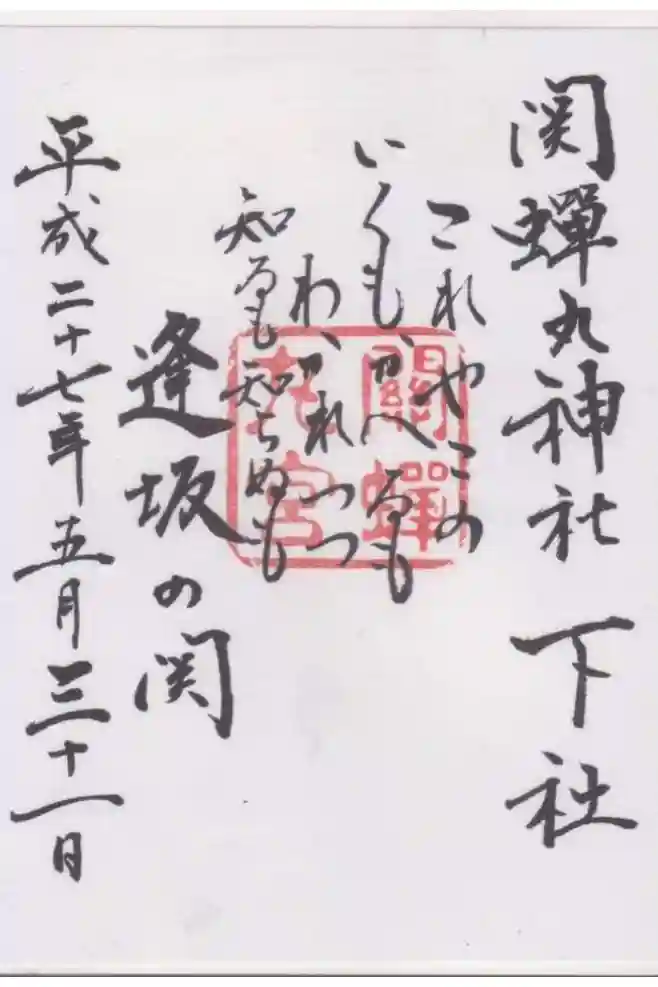 関蝉丸神社 下社
これやこの
いくもかへるも
わかれつつ
知るも知らぬも
逢坂の関
平成二十七年五月三十一日
關蟬
丸宮